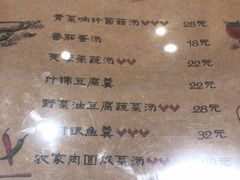 青菜响什菌菇汤♥♥♥ 28元
番茄蛋汤 18元
果蔬汤♥♥♥ 22元
什锦豆腐羹 22元
野菜油豆腐蔬菜汤♥♥ 28元
银鱼羹♥♥ 32元
农家肉圆咸菜汤♥♥